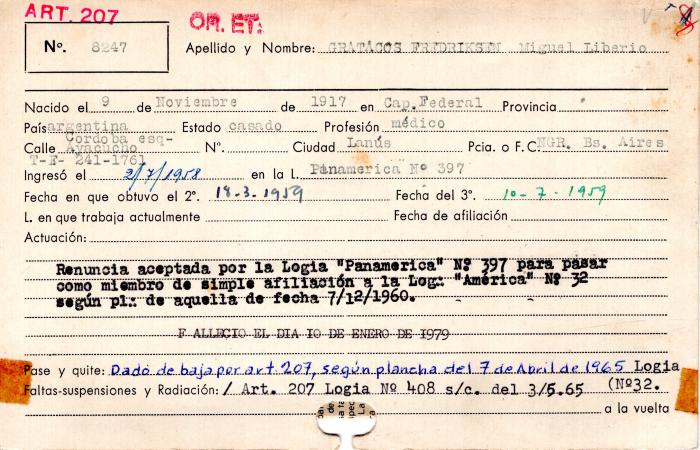 ART. 207
OR. ET.
Nº. 8247
Apellido y Nombre: GRATACOS FREDRIKSEN Miguel Liberio
Nacido el 9 de Noviembre de 1917 en Cap.Federal Provincia
País argentina Estado casado Profesión médico
Calle Cordoba esq- Ayacucho Nº. Ciudad Lanús Pcia. o F.C. NGR. Bs. Aires
T-F- 241-1761
Ingresó el 2/7/1958 en la L. Panamerica Nº 397
Fecha en que obtuvo el 2º. 18-3-1959 Fecha del 3º. 10-7-1959
L. en que trabaja actualmente Fecha de afiliación
Actuación:
Renuncia aceptada por la Logia "Panamerica" Nº 397 para pasar
como miembro de simple afiliación a la Log.: "América" Nº 32
según pl.: de aquella de fecha 7/12/1960.
F ALLECIO EL DIA 10 DE ENERO DE 1979
Pase y quite: Dado de baja por art. 207, según plancha del 7 de Abril de 1965 Logia
Faltas-suspensiones y Radiación: / Art. 207 Logia Nº 408 s/c. del 3/5.65 (Nº32.
a la vuelta